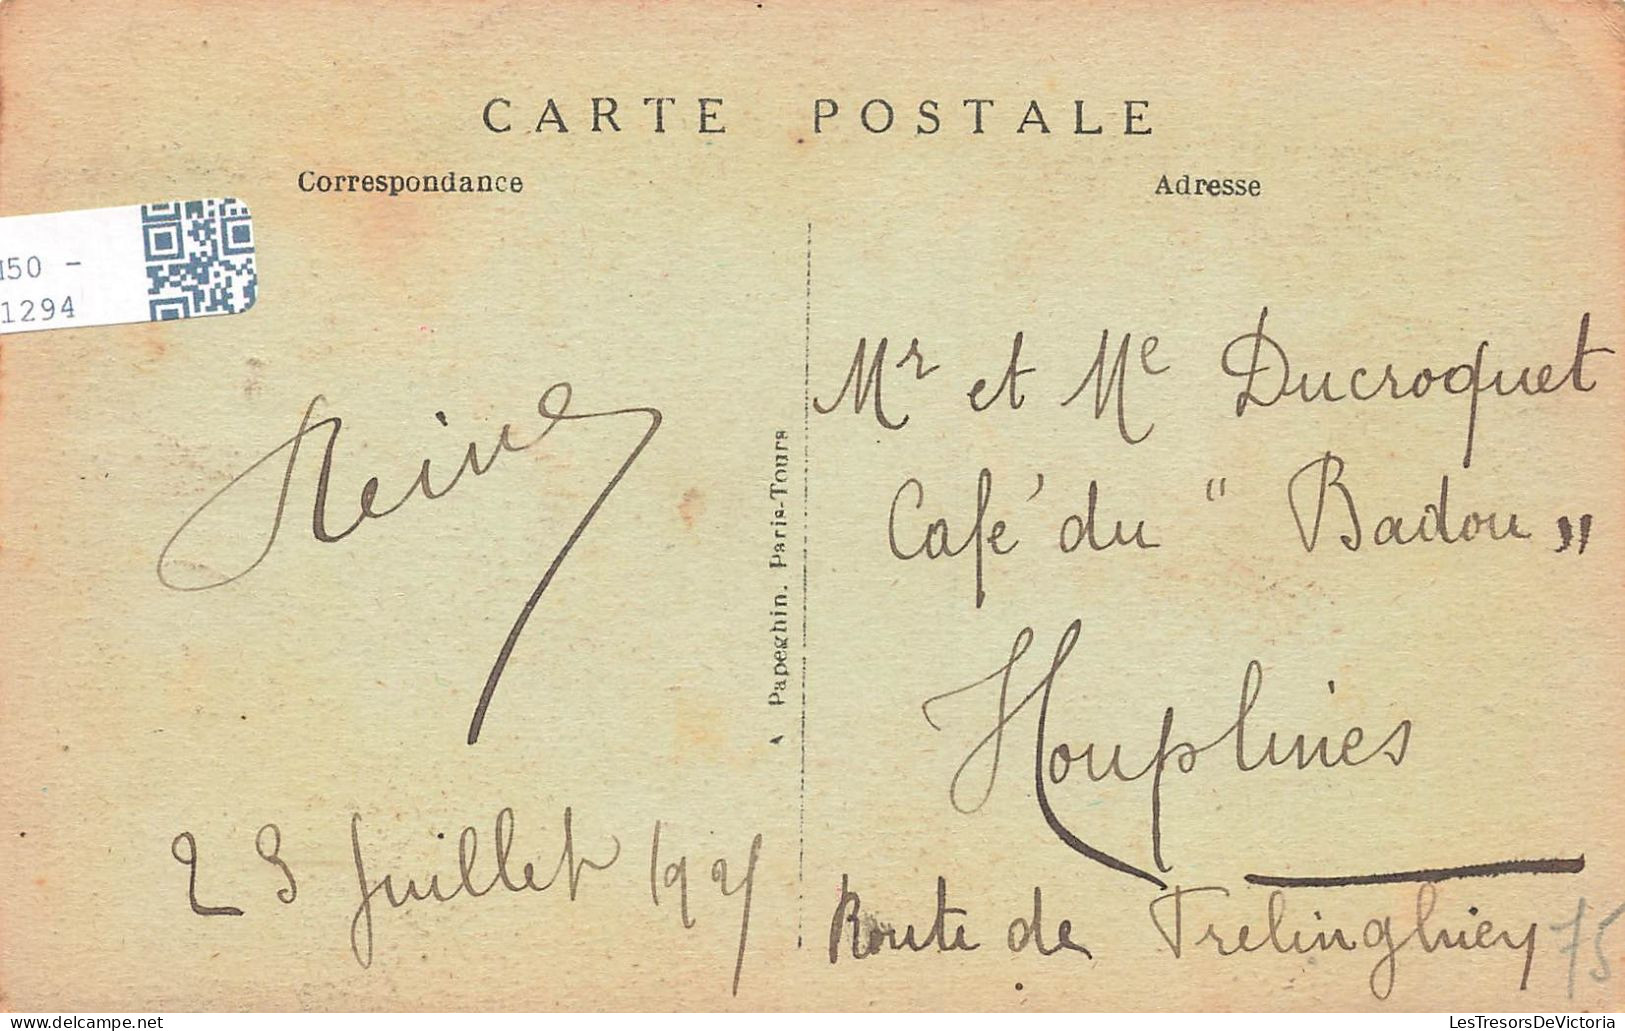 CARTE POSTALE
Correspondance
Adresse
I50 -
1294
Reine
23 Juillet 192
A Papeghin. Paris-Tours
Mr et Me Ducroquet
Café du " Badou "
Houplines
Route de Frelinghien
75
delcampe.net
LesTresorsDeVictoria